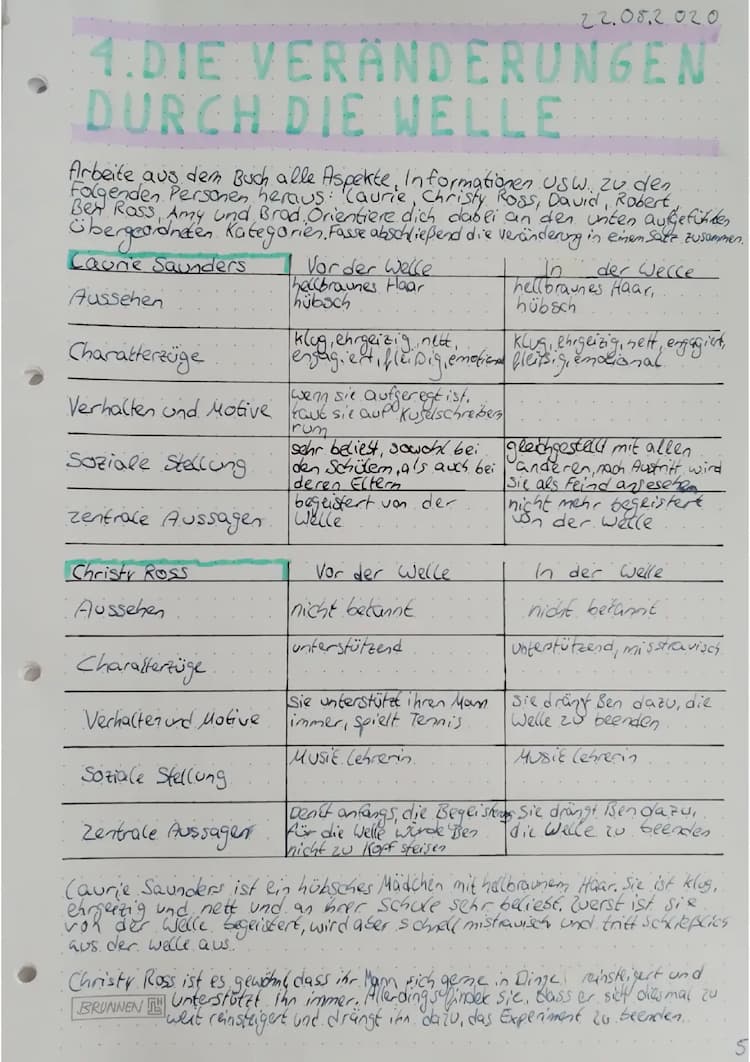 22.08.2020
4. DIE VERÄNDERUNGEN
DURCH DIE WELLE
Arbeite aus dem Buch alle Aspekte, Informationen usw. zu den
folgenden Personen heraus: Laurie, Christy Ross, David, Robert,
Ben Ross, Amy und Brad. Orientiere dich dabei an den unten aufgeführten
übergeordneten Kategorien. Fasse abschließend die Veränderung in einem Satz zusammen.
Laurie Saunders Vor der Welle In der Welle
Aussehen hellbraunes Haar hellbraunes Haar,
hübsch hübsch
Charakterzüge klug, ehrgeizig, nett, klug, ehrgeizig, nett, engagiert,
engagiert, fleißig, emotional fleißig, emotional
Verhalten und Motive wenn sie aufgeregt ist,
kaut sie auf Kugelschreibern
rum
Soziale Stellung sehr beliebt, sowohl bei gleichgestellt mit allen
den Schülern, als auch bei anderen, nach Austritt, wird
deren Eltern sie als Feind angesehen
Zentrale Aussagen begeistert von der nicht mehr begeistert
Welle von der Welle
Christy Ross Vor der Welle In der Welle
Aussehen nicht bekannt nicht bekannt
Charakterzüge unterstützend unterstützend, misstrauisch
Verhalten und Motive Sie unterstützt ihren Mann Sie drängt Ben dazu, die
immer, spielt Tennis Welle zu beenden
Soziale Stellung Musik Lehrerin Musik Lehrerin
Zentrale Aussagen Denkt anfangs, die Begeisterung Sie drängt Ben dazu,
für die Welle würde Ben die Welle zu beenden
nicht zu Kopf steigen
Laurie Saunders ist ein hübsches Mädchen mit hellbraunem Haar. Sie ist klug,
ehrgeizig und nett und an ihrer Schule sehr beliebt. Zuerst ist sie
von der Welle begeistert, wird aber schnell mistrauisch und tritt schließlich
aus der Welle aus.
Christy Ross ist es gewöhnt, dass ihr Mann sich gerne in Dinge reinsteigert und
BRUNNEN unterstützt ihn immer. Allerdings findet sie, dass er sich diesmal zu
weit reinsteigert und drängt ihn dazu, das Experiment zu beenden.
5